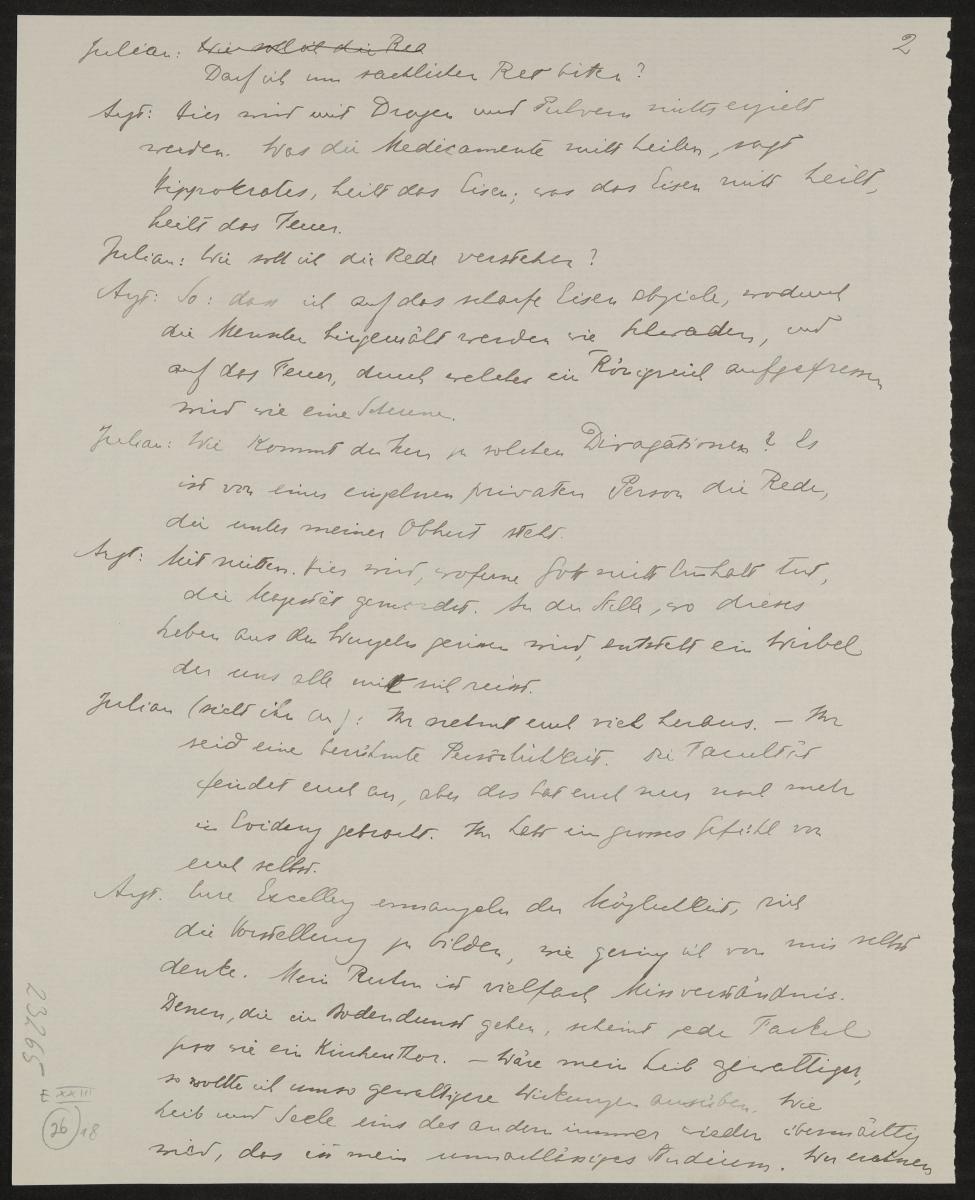 2
Julian: Wie soll ich die Red
Darf ich um sachlichen Rat bitten?
Arzt: Hier wird mit Drogen und Pulvern nichts erzielt
werden. Was die Medicamente nicht heilen, sagt
Hippokrates, heilt das Eisen; was das Eisen nicht heilt,
heilt das Feuer.
Julian: Wie soll ich die Rede verstehen?
Arzt: So: dass ich auf das scharfe Eisen abziele, wodurch
die Menschen hingemäht werden wie Schwaden, und
auf das Feuer, durch welches ein Königreich aufgefressen
wird wie eine Scheune.
Julian: Wie kommt der Herr zu solchen Divagationen? Es
ist von einer einzelnen privaten Person die Rede,
die unter meiner Obhut steht.
Arzt: Mit nichten. Hier wird, woferne Gott nicht Einhalt tut,
die Majestät gemordet. An der Stelle, wo dieses
Leben aus den Wurzeln gerissen wird, entsteht ein Wirbel
der uns alle mit sich reisst.
Julian (sieht ihn an): Ihr nehmt euch viel heraus. – Ihr
seid eine berühmte Persönlichkeit. Die Facultät
feindet euch an, aber das hat euch nur noch mehr
in Evidenz gebracht. Ihr habt ein grosses Gefühl von
euch selbst.
Arzt. Eure Excellenz ermangeln der Möglichkeit, sich
die Vorstellung zu bilden, wie gering ich von mir selbst
denke. Mein Ruhm ist vielfach Missverständnis.
Denen, die im Bodendunst gehen, scheint jede Fackel
gross wie ein Kirchenthor. – Wäre mein Leib gewaltiger,
so wollte ich umso gewaltigere Wirkungen ausüben. Wie
Leib und Seele eins des andern immer wieder übermächtig
wird, das ist mein unnachlässiges Studium. Wir
23265
E XXIII
26 18